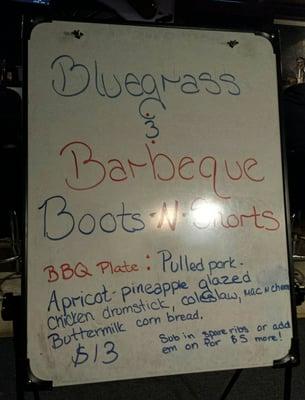 Bluegrass
&
Barbeque
Boots-N-Shorts
BBQ Plate: Pulled pork.
Apricot-pineapple glazed
Chicken drumstick, coleslaw, Mac N cheese
Buttermilk corn bread.
$13
Sub in spare ribs or add
em on for $5 more!